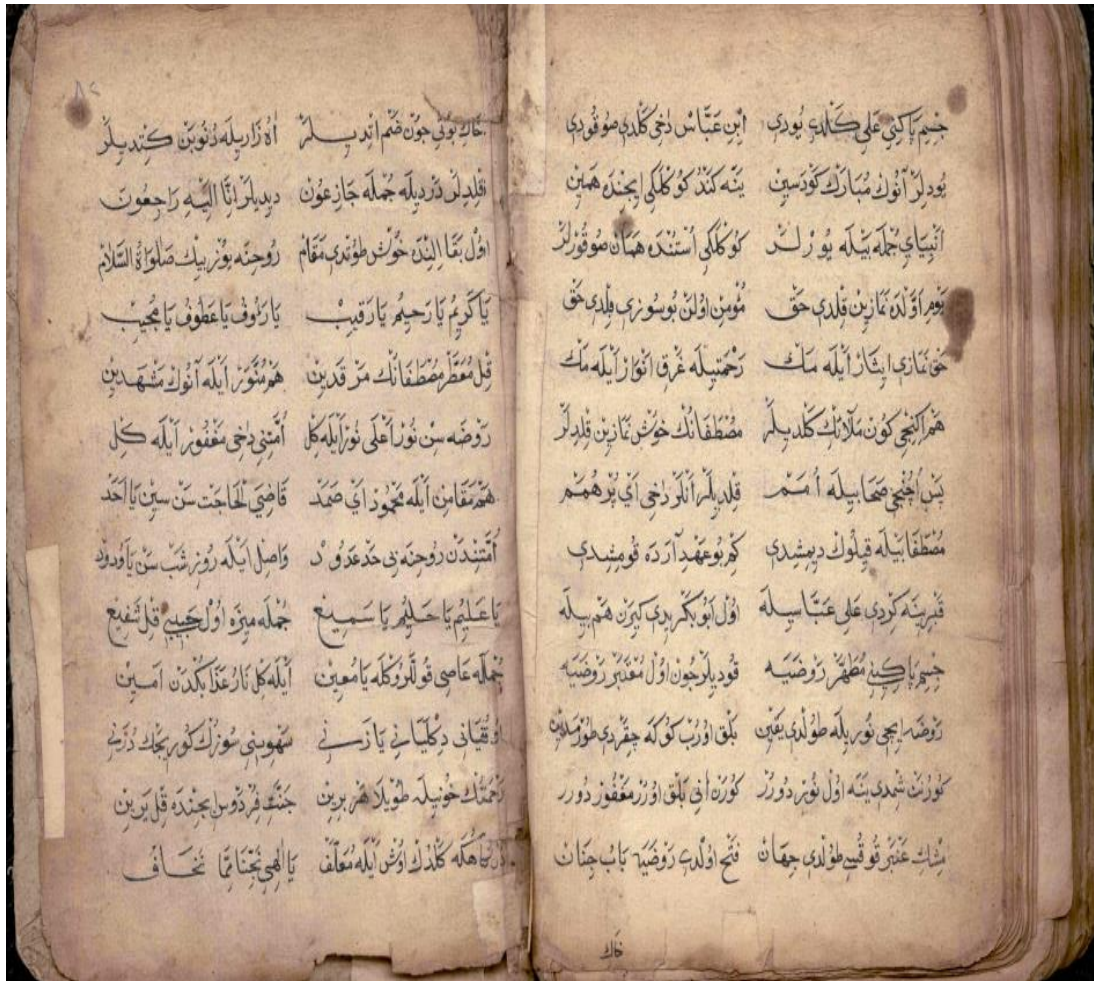 جسم پاكنی علی كلدی یودی ابن عباس دخی كلدی صو قودی
یودیلر آنوك مبارك كودسین ینه كندو كوكلكی ایچنده همین
انبیای جمله بیله یورلر كوكلكی استنده همان صو قورلر
یوم اولده نمازین قلدی حق مؤمن اولن بو سوزی بلدی حق
حق نمازی ایثار ایله مك رحمتیله غرق انوار ایله مك
هم ایكنجی كون ملائك كلدیلر مصطفانك خوش نمازین قلدیلر
پس اچنجی صحابیله امم قلدیلر انلر دخی ای پر همم
مصطفا بیله قیلوك دیمشدی كم بو عهد آرده قومشدی
قبرینه كردی علی عباسیله اول ابو بكریدی كیرن هم بیله
جسم پاكینی مطهر روضیه قودیلر چون اول معتبر روضیه
روضه ایچی نوریله طولدی یقین بلق اورب كوكه چقردی
كورنن شمدی ینه اول نور دورر كورن انی بلق اورر مغفور دورر
مشك عنبر قوقسی طولدی جهان فتح اولدی روضیه باب جنان
خاك
خاك بوتی چون ضم اتدیلر اه زاریله دنوبن كتدیلر
قلدیلر دردیله جمله جازعون دیدیلر انا الیه راجعون
اول بقا الینده خوش طوتدی مقام روحنه یوز بیك صلواة السلام
یا كریم یا رحیم یا رقیب یا رئوف یا عطوف یا مجیب
قل معطر مصطفانك مرقدین هم منور ایله آنوك مشهدین
روضه سن نور اعلی نور ایله كل امتنی دخی مغفور ایله كل
هم مقامن ایله محمود ای صمد قاضی الحاجت سن سین یا احد
امتندن روحنه بی حد عدود واصل ایله روز شب سن یا ودود
یا علیم یا حلیم یا سمیع جمله میزه اول حبیبی قل شفیع
جمله عاصی قوللروكله یا معین ایله كل نار عذابكدن امین
اوقیانی دكلیانی یازنی سهوینی سوزك كوریجك دزنی
رحمتك خونیله طویلا هر برین جنت فردوس ایچنده قل یرین
دركاهكه كلدك اوش ایله معلف یا الهی نجنا مما نخاف